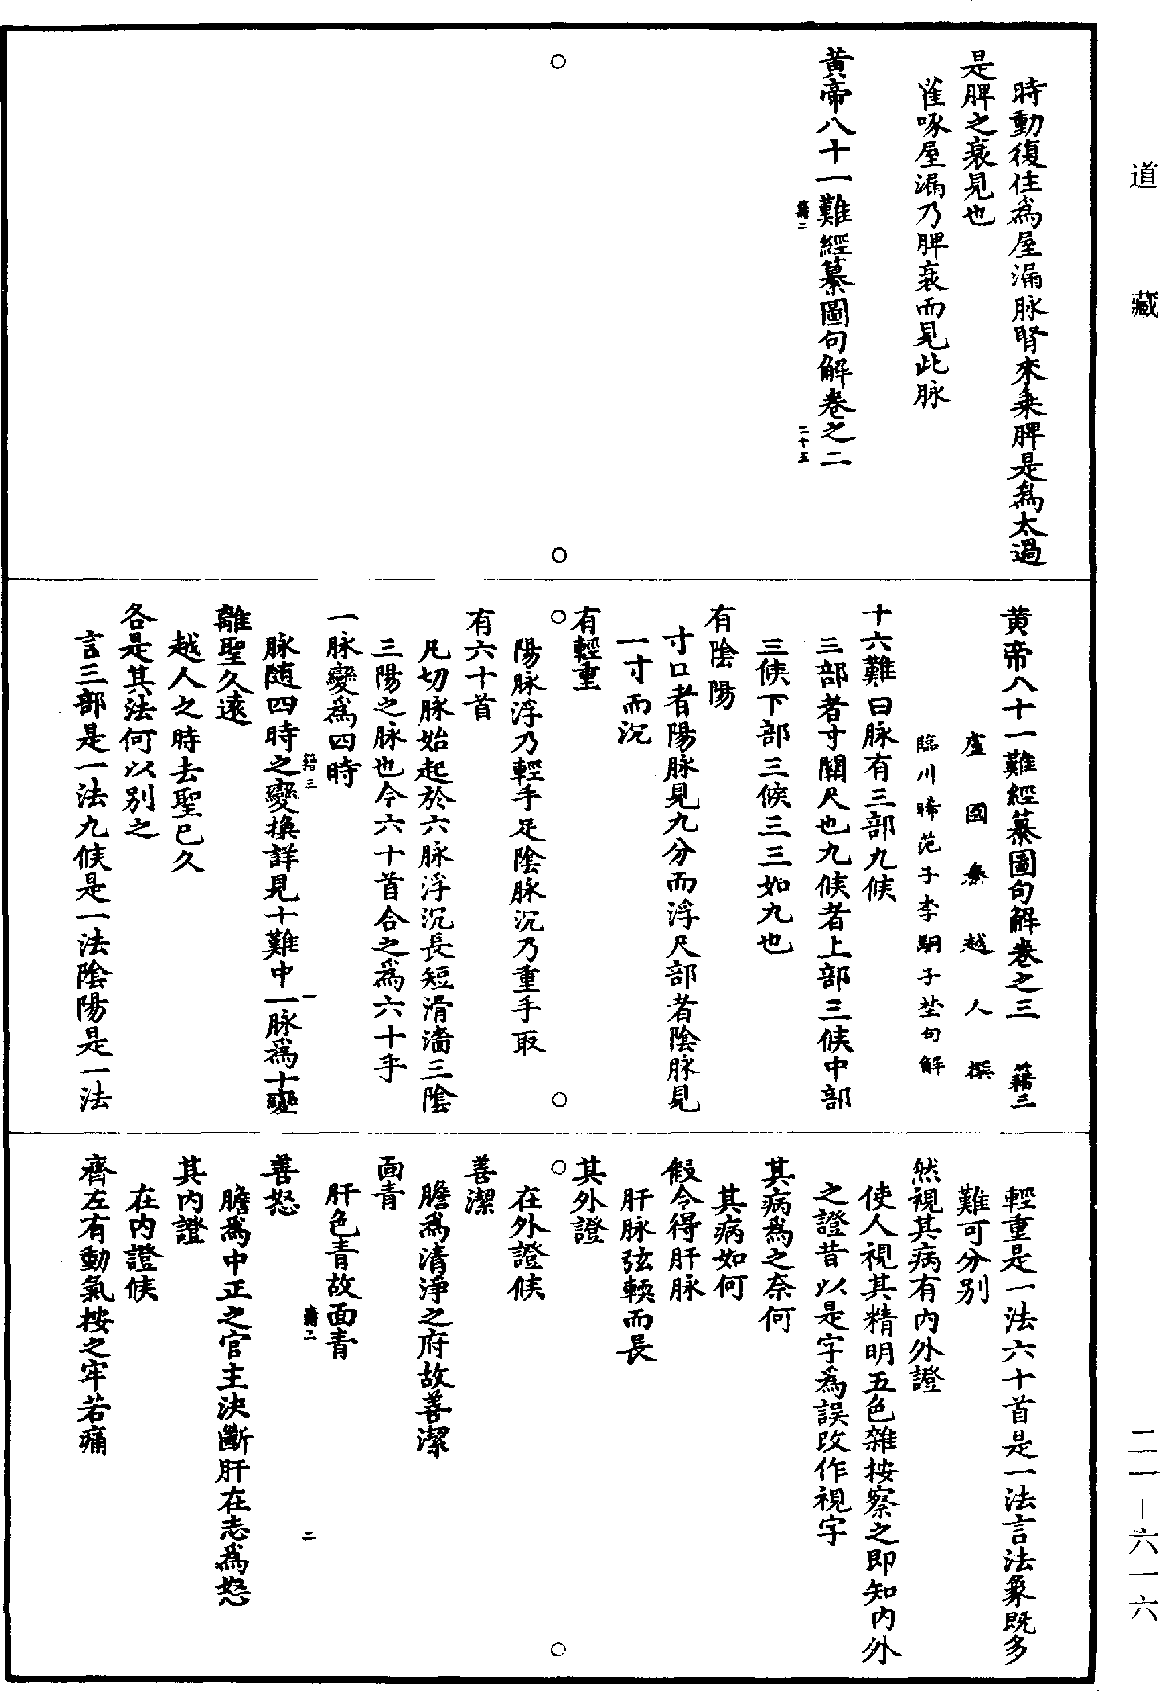 道藏
時動復住為屋漏脉腎來乗脾是為太過
是脾之衰見也
雀啄屋漏乃脾衰而見此脉
黄帝八十一難經纂圖句解卷之二
籍二
二十五
黄帝八十一難經纂圖句解卷之三
籍三
盧國秦越人撰
臨川晞范子李駉子埜句解
十六難曰脉有三部九候
三部者寸關尺也九候者上部三候中部
三候下部三候三三如九也
有陰陽
寸口者陽脉見九分而浮尺部者陰脉見
一寸而沉
有輕重
陽脉浮乃輕手足陰脉沉乃重手取
有六十首
凡切脉始起於六脉浮沉長短滑濇三陰
三陽之脉也今六十首合之為六十乎
一脉變為四時
籍三
一
脉随四時之變換詳見十難中一脉為十變
離聖久遠
越人之時去聖已久
各是其法何以別之
言三部是一法九候是一法陰陽是一法
輕重是一法六十首是一法言法象既多
難可分別
然視其病有内外證
使人視其精明五色雜按察之即知内外
之證昔以是字為誤改作視字
其病為之奈何
其病如何
假令得肝脉
肝脉弦輭而長
其外證
在外證候
善潔
膽為清淨之府故善潔
面青
肝色青故面青
籍二
二
善怒
膽為中正之官主決斷肝在志為怒
其内證
在内證候
齊左有動氣按之牢若痛
二一—六一六